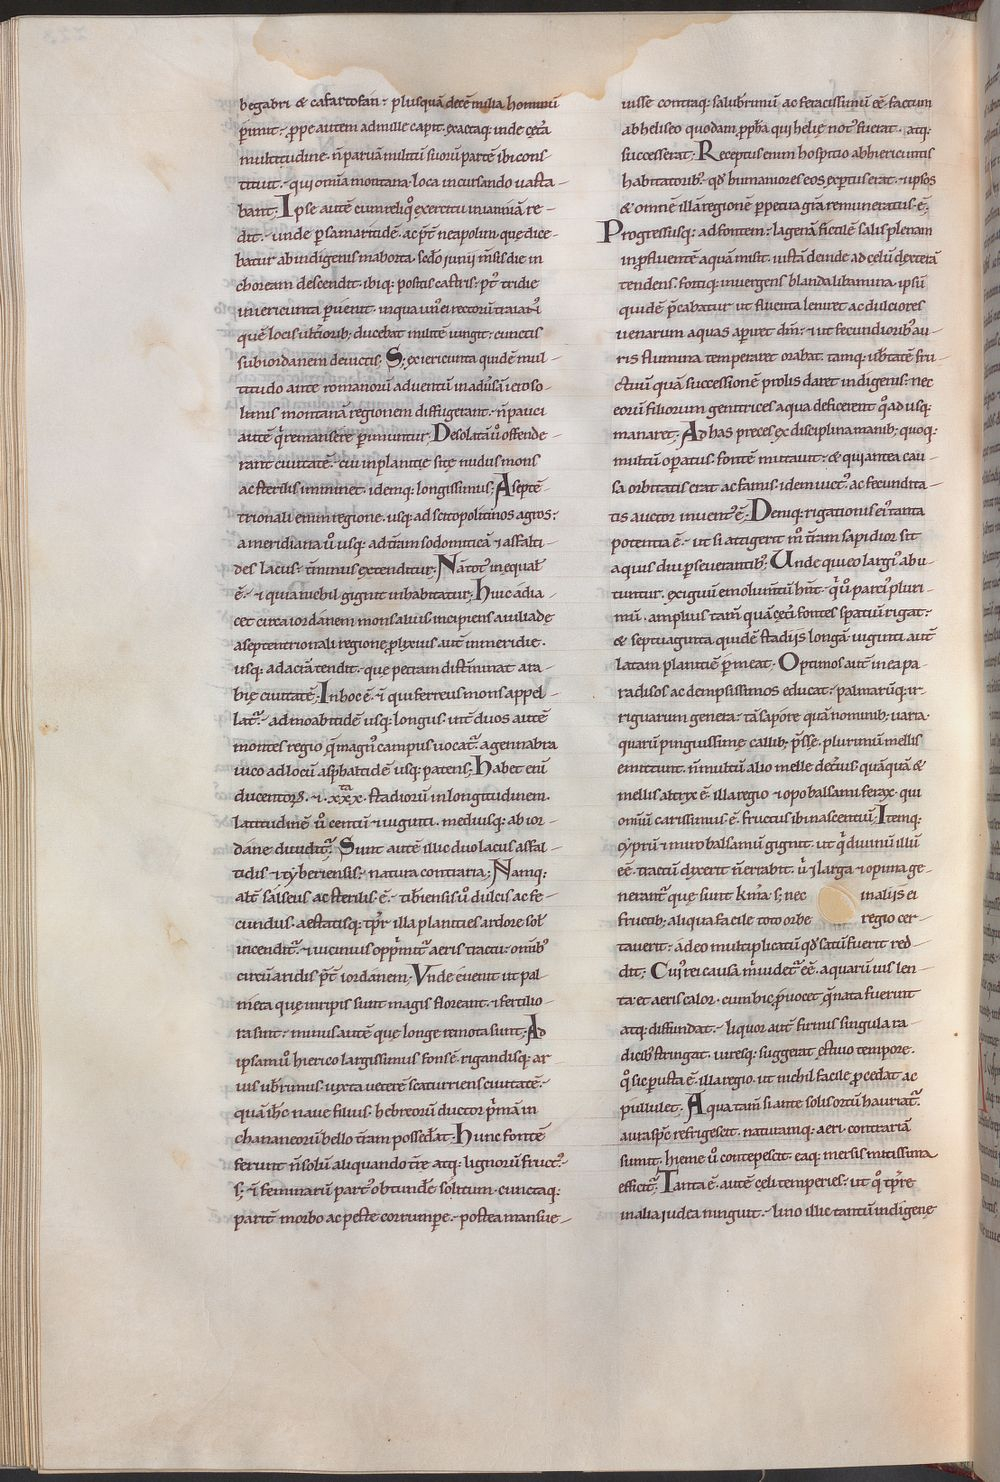 begabri & cafartofan: plusquā decē milia hominū
ṗimit: ṗpe autem ad mille capit. exactaq: inde cęta
multitudine. n̄ parvā militū suorū partē ibi cons-
tituit. qui omīa montana loca incursando uasta-
bant; Ipse autē cum reliq̊ exercitu in ammā re-
dit. unde ꝑ samaritidē. ac p̄t neapolim. quę dice-
batur ab indigenis maborta. scd̄o iunij m̄sis die in
choream descendit. ibiq: positis castris. p̄t tridie
in iericunta ꝑuenit. in qua un̾ ei rectorū traian̾
quē locis ult̄iorib; ducebat militē iungit. cunctis
sub iordanem deuictis; S; ex iericunta quidē mul-
titudo ante romanorū aduentū in aduersā ieroso-
limis montanā regionem diffugerant. n̄ pauci
autē q̄ remansere ꝑimuntur. Desolatā ů offende-
rant ciuitatē. cui in planicie sitę nudus mons
ac sterilis imminet. idemq: longissimus; A septē-
trionali enim regione. usq: ad scitopolitinos agros:
a meridiana ů usq: ad t̄ram sodomiticā & asfalti-
des lacus. t̄minus extenditur; Nā tot̾ inequal̄
ē. & quia nichil gignit inhabitatur; Huic adia-
cet circa iordanem mons alius incipiens a iuliade
a septentrionali regione ꝓlixius aut̄ in meridie.
usq: ad acīa tendit. que petram dist̄minat ara-
bię ciuitatē; In hoc ē. & qui ferreus mons appel-
lat̄. ad moabitidē usq: longus. int̄ duos autē
montes regio q̄ magn̾ campus uocat̄. a gennabra
uico ad locū asphaltidē usq: patens; Habet eni
ducentorᷣ. & xxxta. stadiorū in longitudinem.
latitudinē ů centū & uiginti. mediusq: ab ior-
dane diuidit̄; Sunt autē illic duo lacus asfal-
tidis & tyberiensis. natura contraria; Namq:
alt̄ salseus ac sterilis ē. tib̄iensis ů dulcis ac fe-
cundus. aestatisq: tp̄r illa planities ardore sol̄
incendit̄. & uicinius opp̄mit̄ aeris tractu. omīb̾
circū aridis p̄t iordanem; Vnde euenit ut pal-
meta quę in ripis sunt magis floreant. & fertilio-
ra sint. minus autē que longe remota sunt; Ad
ipsam ů hierico largissimus fons ē. rigandisq: ar-
uis ub̄rimus. iuxta veterē scaturriens ciuitatē.
quā ih̄c naue filius. hebreorū ductor p̄mā in
chananeorū bello t̄ram possed̄at. Hunc fontē
ferunt n̄ solū aliquando t̄rę atq: lignorū fruct̾.
s; & feminarū part̾ obtund̄e solitum. cunctaq:
part̄ morbo ac peste corrumpe. postea mansue-
uisse contraq: salub̄rimū ac feracissimū eē factum
ab heliseo quodam ꝓph̄a qui helię not̾ fuerat. atq:
successerat; Receptus enim hospitio ab hiericuntis
habitatorib̾. qd̄ humaniores eos exꝑtus erat. & ipsos
& omnē illā regionē ꝑpetua gr̄a remuneratus ē.
Progressusq: ad fontem. lagenā fictilē salis plenam
in ꝓfluentē aquā misit. iustā deinde ad celū dexterā
tendens. fontiq: inuergens blanda libamina. ipsū
quidē p̄cabatur ut fluenta leniret ac dulciores
uenarum aquas apiret. dm̄. & ut fecundiorib̾ au-
ris flumina temperaret orabat. tamq: ub̄tatē fru-
ctuū quā successionē prolis daret indigenis. nec
eorū filiorum genitrices aqua deficerent q̊ad usq:
manaret; Ad has preces ex disciplina manib; quoq:
multū opatus. fontē mutauit. & qui antea cau-
sa orbitatis erat ac famis. idem iuct̾ ac fecundita-
tis auctor inuent̾ ē; Deniq: rigationis ei̾ tanta
potentia ē. ut si attigerit m̊ t̄ram sapidior sit
aquis diu ꝑseuerantib̾; Unde qui eo largi̾ abu-
tuntur. exiguū emolum̄tū hn̄t. q̄ ů parci̾ pluri-
mū. amplius tam̄ quā cęti fontes spatiū rigat.
& septuaginta quidē stadijs longā. uiginti aut̄
latam planitiē ꝑmeat. Optimos aut̄ in ea pa-
radisos ac dempsissimos educat. palmarūq: ir-
riguarum genera. tā sapore quā nominib; uaria.
quarū pinguissimę callib; p̄sse. plurimū mellis
emittunt. n̄ multū alio melle det̄ius. quāquā &
mellis altrix ē. illa regio & opobalsami ferax. qui
omīū carissimus ē. fructus ibi nascentiū; Itemq:
cyprū & mirobalsamū gignit. ut q̄ diuinū illū
eē tractū dixerit n̄ errabit. ů & larga & opima ge-
nerant̄ quę sunt kr̄ma. s; nec in alijs ei
fructib; aliqua facile toto orbe regio cer-
tauerit. adeo multiplicatū qd̄ satū fuerit red-
dit; Cui̾ rei causa m̄ uidet̄ eē. aquarū uis len-
ta et aeris calor. cum hic ꝓuocet q̄ nata fuerint
atq: diffundat. liquor aut̄ firmis singula ra-
dicib̾ stringat. uiresq: suggerat estiuo tempore.
q̊ sic ꝑusta ē. illa regio. ut nichil facile ꝓcedat ac
pullulet. Aqua tam̄ si ante solis ortū hauriat̄.
aura sp̄e refrigescit. naturamq: aeri. contrariā
sumit. hieme ů contepescit. eaq: mersis mitissima
efficit̄; Tanta ē. autē cęli temperies. ut q̊ tp̄re
in alia iudea ninguit. lino illic tantū indigenę